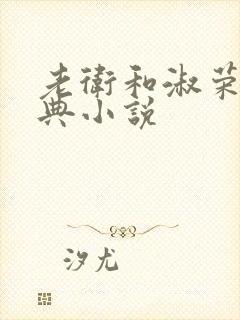 老衛和淑荣
典小説
汐尤